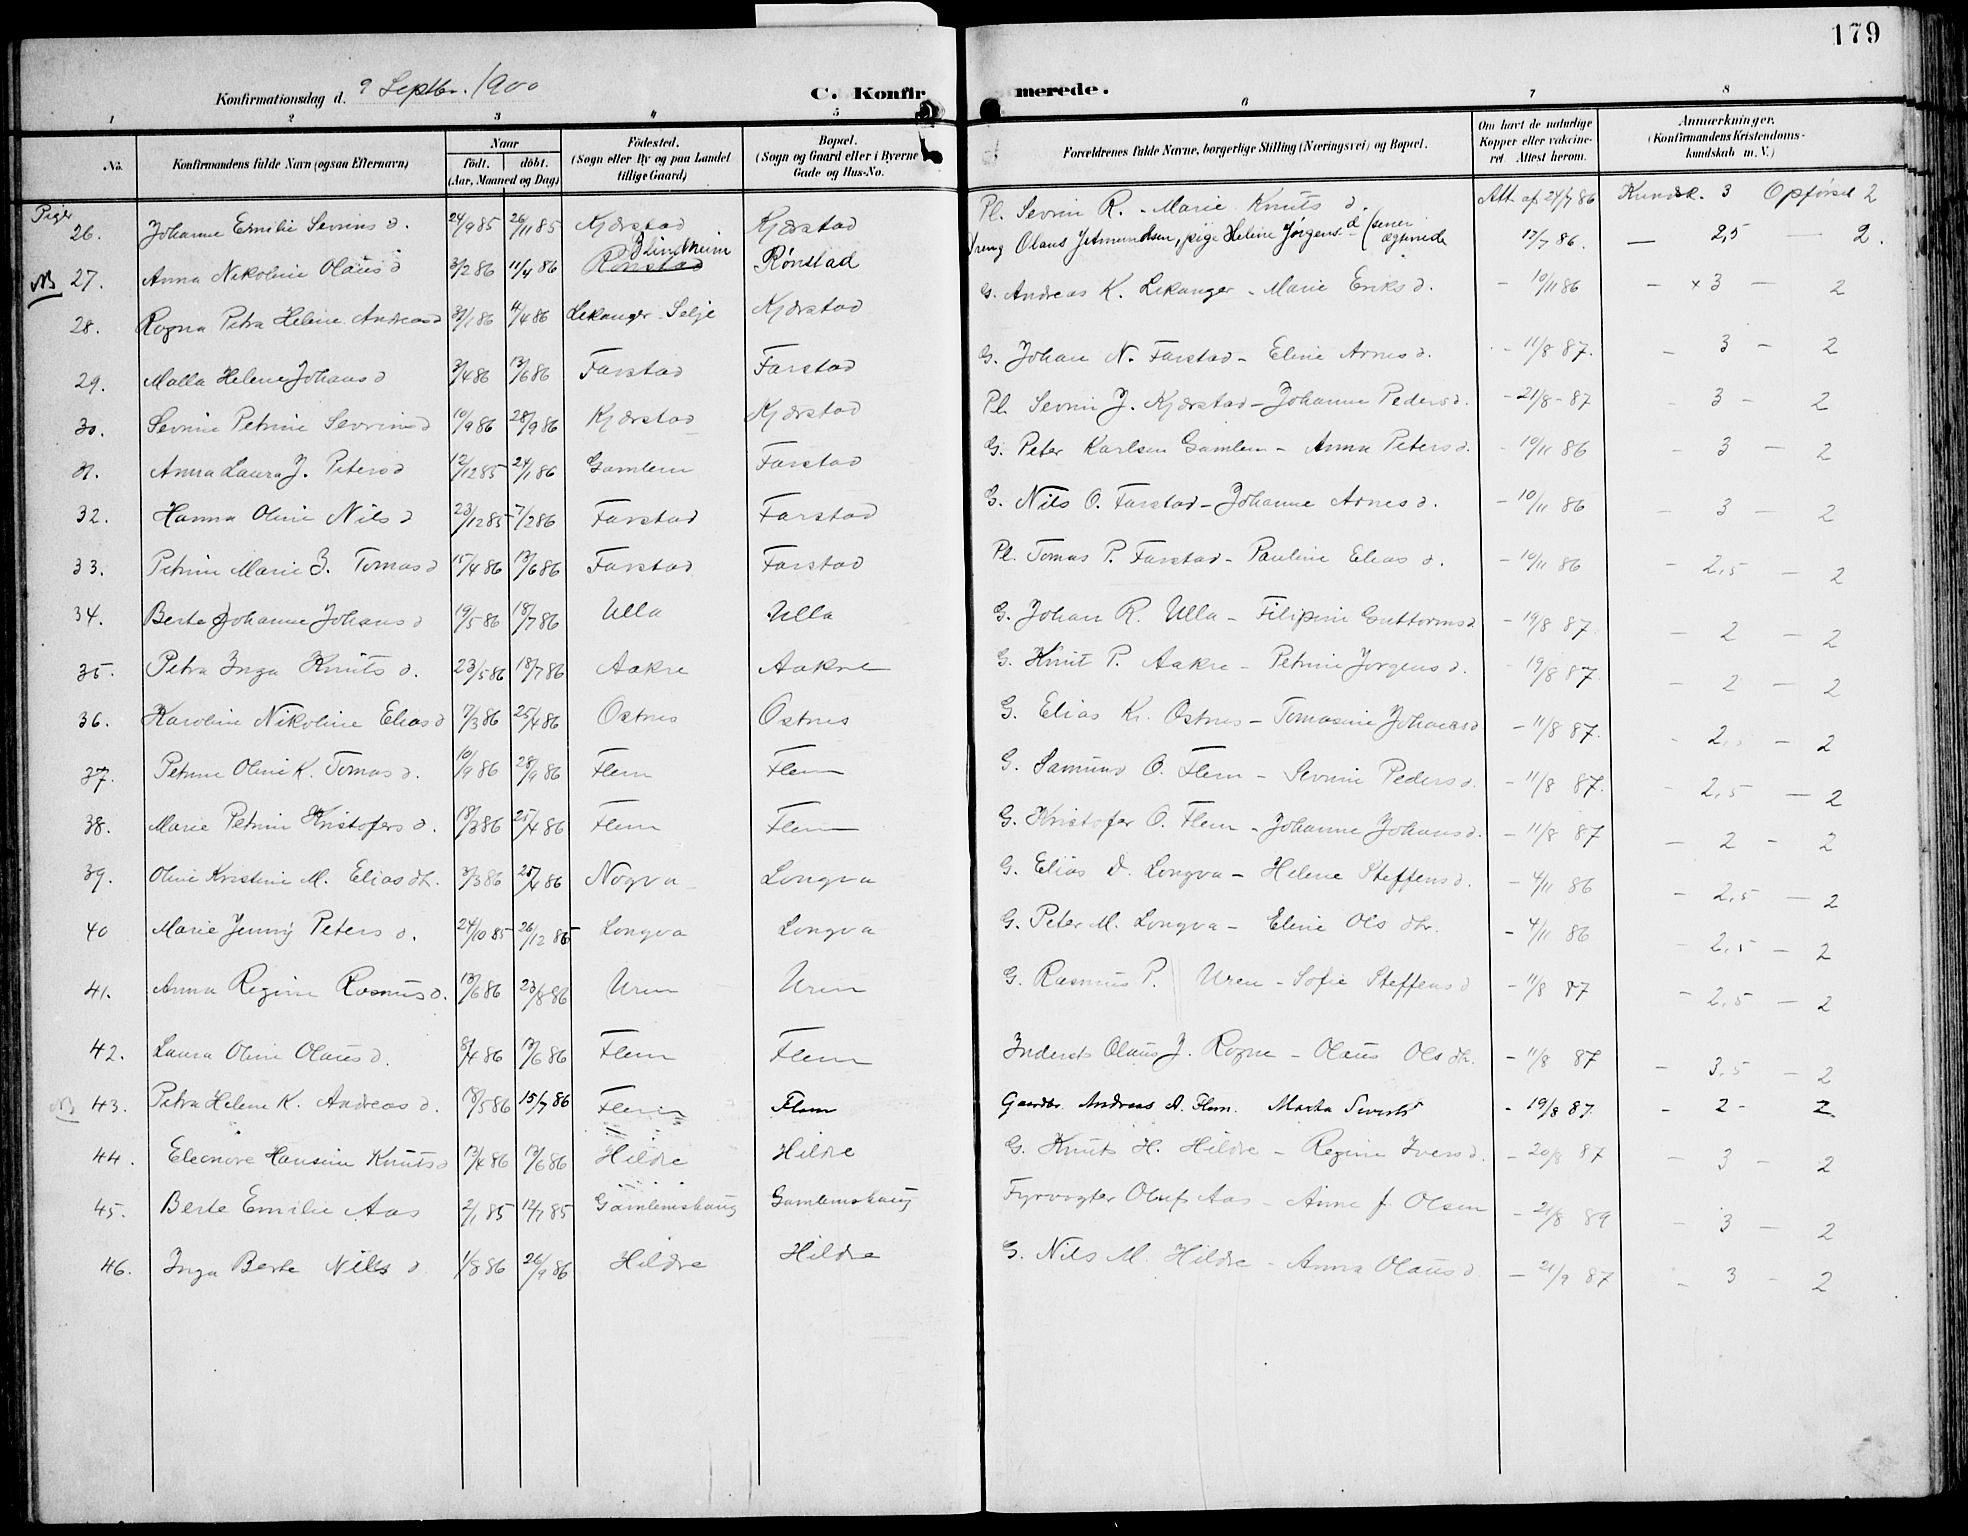 179
Konfirmationsdag d. 9 Septbr. 1900
C. Konfirmerede.
1 2 3 4 5 6 7 8
No. Konfirmandens fulde Navn (ogsaa Efternavn) Naar födt. döbt. (Aar, Maaned og Dag) Födested. (Sogn eller By og paa Landet tillige Gaard) Bopæl. (Sogn og Gaard eller i Byerne Gade og Hus-No. Forældrenes fulde Navne, borgerlige Stilling (Næringsvei) og Bopæl. Om havt de naturlige Kopper eller vakcineret. Attest herom. Anmærkninger. (Konfirmandens Kristendomskundskab m. V.)
Piger
26. Johanne Emilie Sevrins d. 24/9 85 26/11 85 Kjærstad Kjærstad Pl. Sevrin R. - Marie Knuts d. Att. af 24/7 86 Kundsk. 3 Opførsel 2
NB 27. Anna Nikoline Olaus d 3/2 86 11/4 86 Rønstad Blindheim Rønstad Dreng Olaus Jetmundsen, pige Heline Jørgens d (senere ægteviede 17/7 86. — 2,5 — 2.
28. Ragna Petra Heline Andreas d 31/1 86 11/4 86 Lekanger Selje Kjærstad G. Andreas K. Lekanger - Marie Eriks d. - 10/11 86 - x 3 - 2
29. Malla Helene Johans d 3/4 86 13/6 86 Farstad Farstad G. Johan N. Farstad - Eline Arnes d. - 11/8 87. - 3 - 2
30. Sevrine Petrine Sevrins d 10/9 86 28/9 86 Kjærstad Kjærstad Pl. Sevrin J. Kjærstad - Johanne Peders d. - 21/8 - 87 - 3 - 2
31. Anna Laura J. Peters d 12/12 85 24/1 86 Gamlem Farstad G. Peter Karlsen Gamlem - Anna Peters d. - 10/11 86 - 3 - 2
32. Hanna Oline Nils d 23/12 85 7/2 86 Farstad Farstad G. Nils O. Farstad - Johanne Arnes d. - 10/11 86 - 3 - 2
33. Petrine Marie B. Tomas d 15/4 86 13/6 86 Farstad Farstad Pl. Tomas P. Farstad - Pauline Elias d. - 10/11 86 - 2,5 - 2
34. Berte Johanne Johans d 19/5 86 18/7 86 Ulla Ulla G. Johan R. Ulla - Filipine Guttorms d - 19/8 87. - 2 - 2
35. Petra Inga Knuts d. 23/5 86 18/7 86 Aakre Aakre G. Knut P. Aakre - Petrine Jørgens d. - 19/8 87. - 2 - 2
36. Karoline Nikoline Elias d 7/3 86 25/4 86 Ostnes Ostnes G. Elias Kr. Ostnes - Tomasine Johans d - 11/8 87. - 2,5 - 2
37. Petrine Oline K. Tomas d. 10/9 86 28/9 86 Flem Flem G. Samund O. Flem - Sevrine Peders d. - 11/8 87. - 2,5 - 2
38. Marie Petrine Kristofers d. 13/3 86 25/4 86 Flem Flem G. Kristofer O. Flem - Johanne Johans d. - 11/8 87 - 2 - 2
39. Oline Kristine M. Elias dtr. 3/3 86 25/4 86 Nogva Longva G. Elias D. Longva - Helene Steffens d. - 4/11 86 - 2,5 - 2
40 Marie Jenny Peters d. 24/10 85 26/12 85 Longva Longva G. Peter M. Longva - Eline Ols dtr. - 4/11 86 - 2,5 - 2
41. Anna Regine Rasmus d. 13/6 86 23/8 86 Uren Uren G. Rasmus P. Uren - Sofie Steffens d - 11/8 87 - 2,5 - 2
42. Laura Oline Olaus d. 8/4 86 13/6 86 Flem Flem Inderst Olaus J. Rogne - Olaus Ols dtr. - 11/8 87 - 3,5 - 2
NB 43. Petra Helene K. Andreas d. 18/5 86 15/7 86 Flem Flem Gaardbr. Andreas A. Flem. Marta Siverts - 19/8 87. - 2 - 2
44. Eleonore Hansine Knuts d 13/4 86 13/6 86 Hildre Hildre G. Knut H. Hildre - Regine Ivers d. - 20/8 87 - 3 - 2
45. Berte Emilie Aas 2/1 85 12/7 85 Gamlemshaug Gamlemshaug Fyrvogter Oluf Aas - Anne f. Olsen - 21/8 89 - 3 - 2
46. Inga Berte Nils d 1/8 86 26/9 86 Hildre Hildre G. Nils M. Hildre - Anna Olaus d - 21/9 87 - 3 - 2